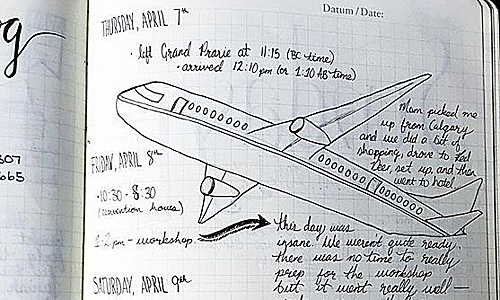 Datum / Date:
THURSDAY, APRIL 7th
• left Grand Prarie at 11:15 (BC time)
• arrived 12:10 pm (or 1:10 AB time)
Mom picked me
up from Calgary
and we did a bit of
shopping, drove to Red
Deer, set up, and then
went to hotel
307
665
FRIDAY, APRIL 8th
• 10:30 - 8:30
(convention hours)
1-2 pm - workshop
this day was
insane. We weren't quite ready,
there was no time to really
prep for the workshop
but it went really well —
SATURDAY, APRIL 9th